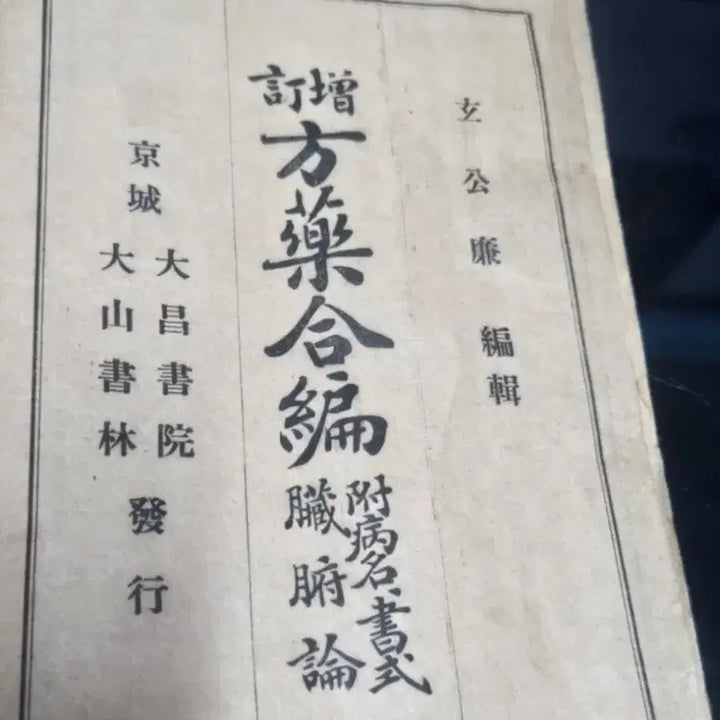 玄公廉 編輯
增訂
方藥合編
附病名、書式
臟腑論
京城
大昌書院
大山書林
發行